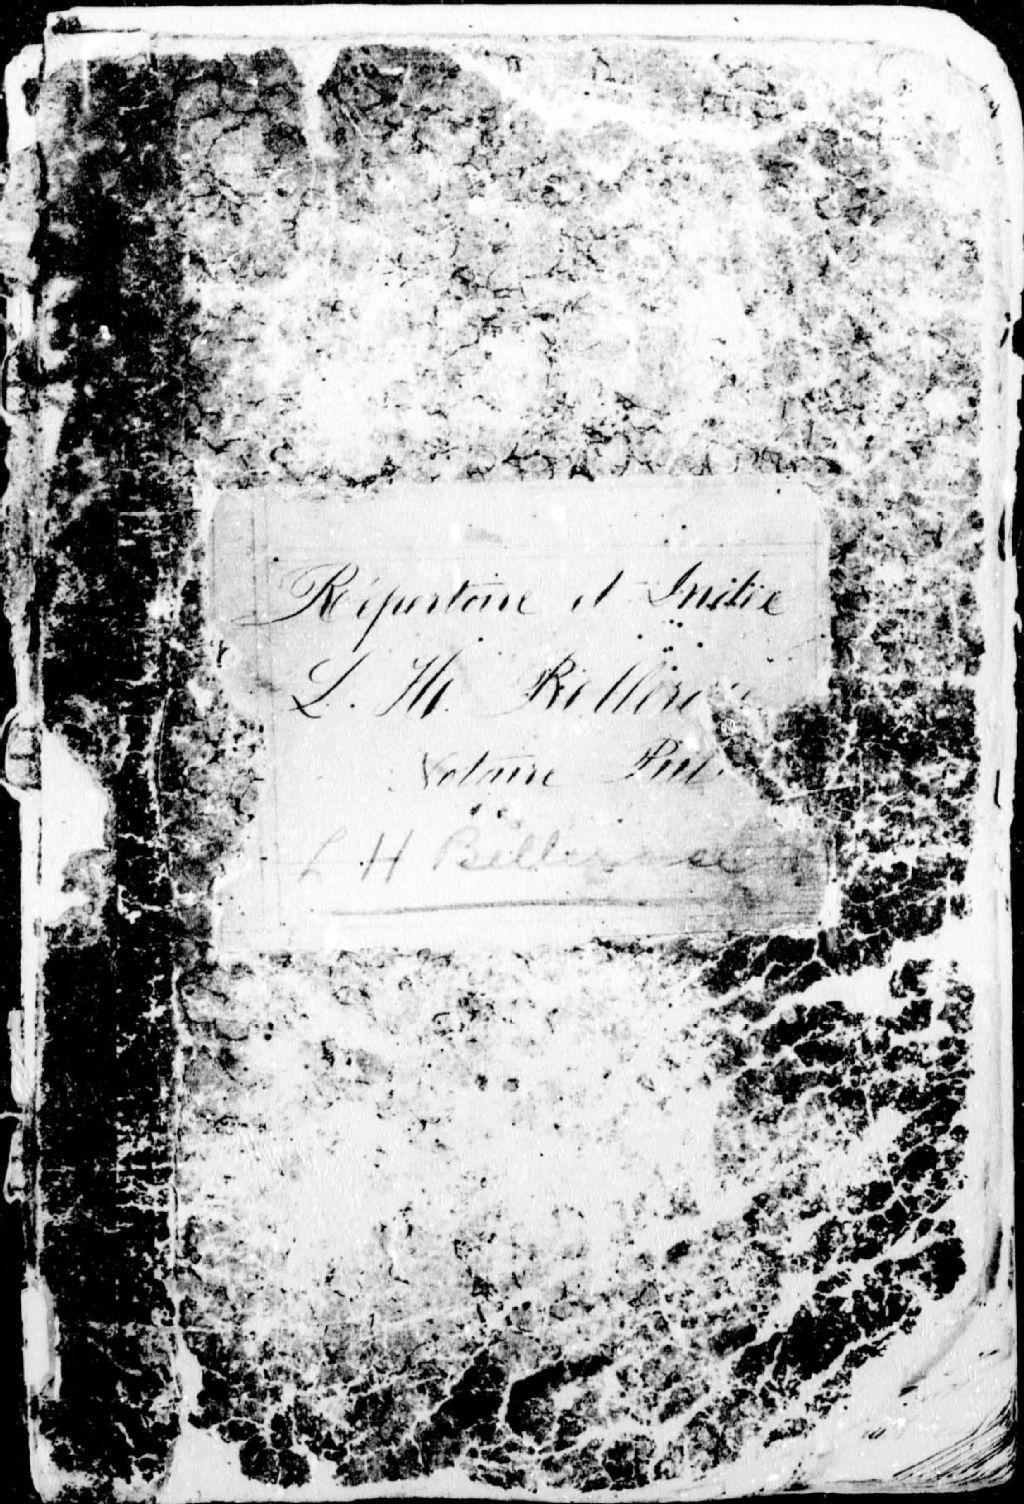 Répertoire et Index
L. H. Bellerose
Notaire Pub
L H Bellerose